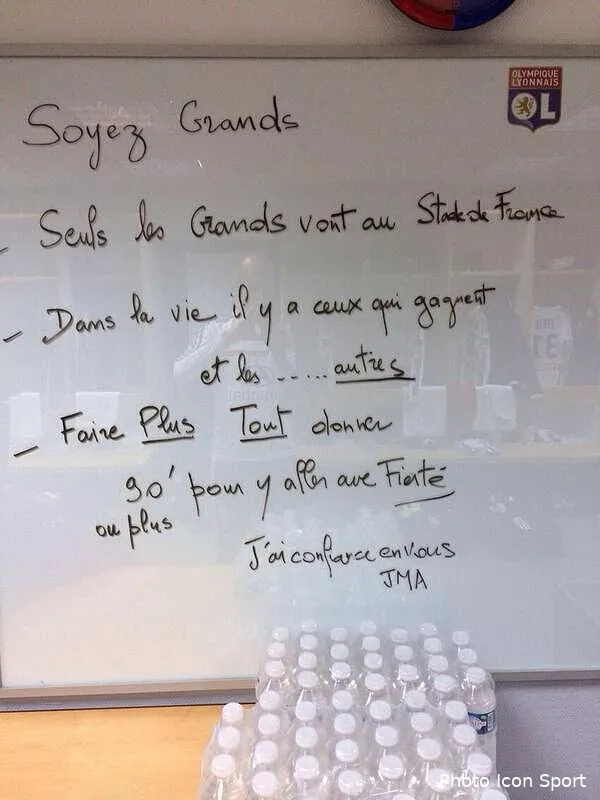 OLYMPIQUE
LYONNAIS
OL
Soyez Grands
- Seuls les Grands vont au Stade de France
- Dans la vie il y a ceux qui gagnent
et les ..... autres
- Faire Plus Tout donner
90' pour y aller avec Fierté
ou plus
J'ai confiance en vous
JMA
Photo Icon Sport